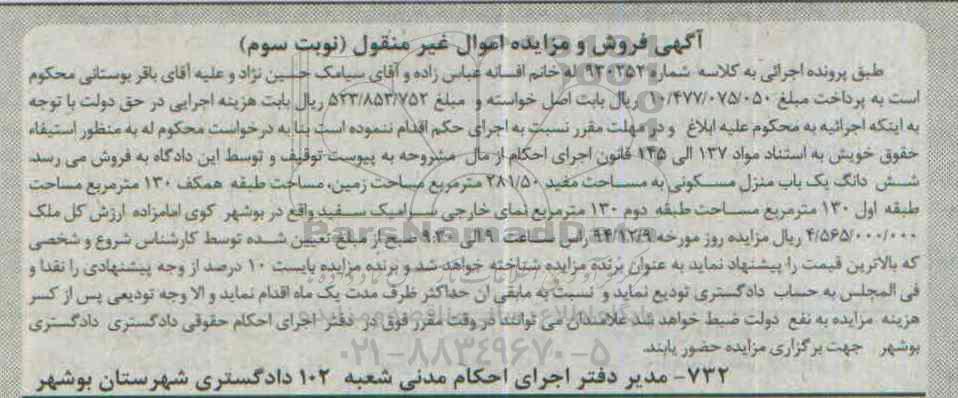 آگهی فروش و مزایده اموال غیر منقول (نوبت سوم)
طبق پرونده اجرائی به کلاسه شماره ۹۳۰۳۵۲ له خانم افسانه عباس زاده و آقای سیامک حسین نژاد و علیه آقای باقر بوستانی محکوم
است به پرداخت مبلغ ۱۰/۴۷۷/۰۷۵/۰۵۰ ریال بابت اصل خواسته و مبلغ ۵۲۳/۸۵۳/۷۵۲ ریال بابت هزینه اجرایی در حق دولت با توجه
به اینکه اجرائیه به محکوم علیه ابلاغ و در مهلت مقرر نسبت به اجرای حکم اقدام ننموده است بنا به درخواست محکوم له به منظور استیفاء
حقوق خویش به استناد مواد ۱۳۷ الی ۱۴۵ قانون اجرای احکام از مال مشروحه به پیوست توقیف و توسط این دادگاه به فروش می رسد.
شش دانگ یک باب منزل مسکونی به مساحت مفید ۲۸۱/۵۰ مترمربع مساحت زمین، مساحت طبقه همکف ۱۳۰ مترمربع مساحت
طبقه اول ۱۳۰ مترمربع مساحت طبقه دوم ۱۳۰ مترمربع نمای خارجی سرامیک سفید واقع در بوشهر کوی امامزاده ارزش کل ملک
۴/۵۶۵/۰۰۰/۰۰۰ ریال مزایده روز مورخه ۹۴/۱۲/۹ راس ساعت ۹ الی ۹:۳۰ صبح از مبلغ تعیین شده توسط کارشناس شروع و شخصی
که بالاترین قیمت را پیشنهاد نماید به عنوان برنده مزایده شناخته خواهد شد و برنده مزایده بایست ۱۰ درصد از وجه پیشنهادی را نقدا و
فی المجلس به حساب دادگستری تودیع نماید و نسبت به مابقی آن حداکثر ظرف مدت یک ماه اقدام نماید و الا وجه تودیعی پس از کسر
هزینه مزایده به نفع دولت ضبط خواهد شد علاقمندان می توانند در وقت مقرر فوق در دفتر اجرای احکام حقوقی دادگستری دادگستری
بوشهر جهت برگزاری مزایده حضور یابند.
۷۳۲- مدیر دفتر اجرای احکام مدنی شعبه ۱۰۲ دادگستری شهرستان بوشهر
ParsNamadData
۰۲۱-۸۸۳۴۹۶۷۰-۵